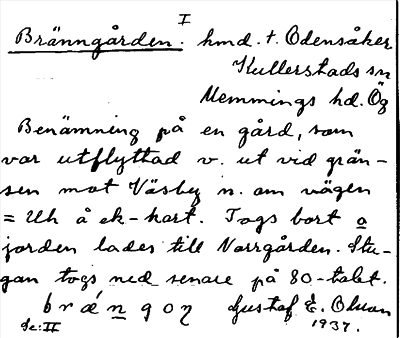 I
Bränngården: hmd. t. Odensåker
Kullerstads sn
Memmings hd. Ög
Benämning på en gård, som
var utflyttad v. ut vid grän-
sen mot Väsby n. om vägen
= Uh å ek-kart. Togs bort o
jorden lades till Norrgården. Stu-
gan togs ned senare på 80-talet.
Gustaf E. Olsson
Se: II 1937.